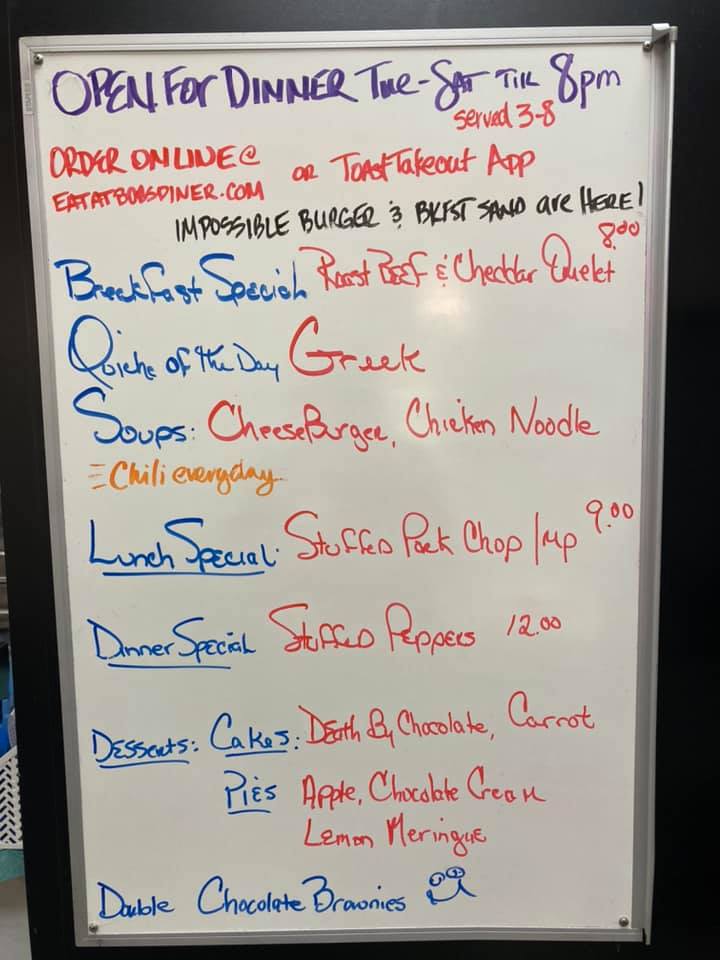 OPEN For DINNER Tue-Sat TIL 8pm
served 3-8
ORDER ONLINE@ or Toast Takeout App
EATATBOBSDINER.COM
IMPOSSIBLE BURGER & BKFST SAND are HERE!
8.00
Breakfast Special Roast BEEF & Cheddar Omelet
Quiche of the Day Greek
Soups: CheeseBurger, Chicken Noodle
Chili everyday
Lunch Special: Stuffed Pork Chop /mp 9.00
Dinner Special Stuffed Peppers 12.00
Desserts: Cakes: Death By Chocolate, Carrot
Pies Apple, Chocolate Cream
Lemon Meringue
Double Chocolate Brownies